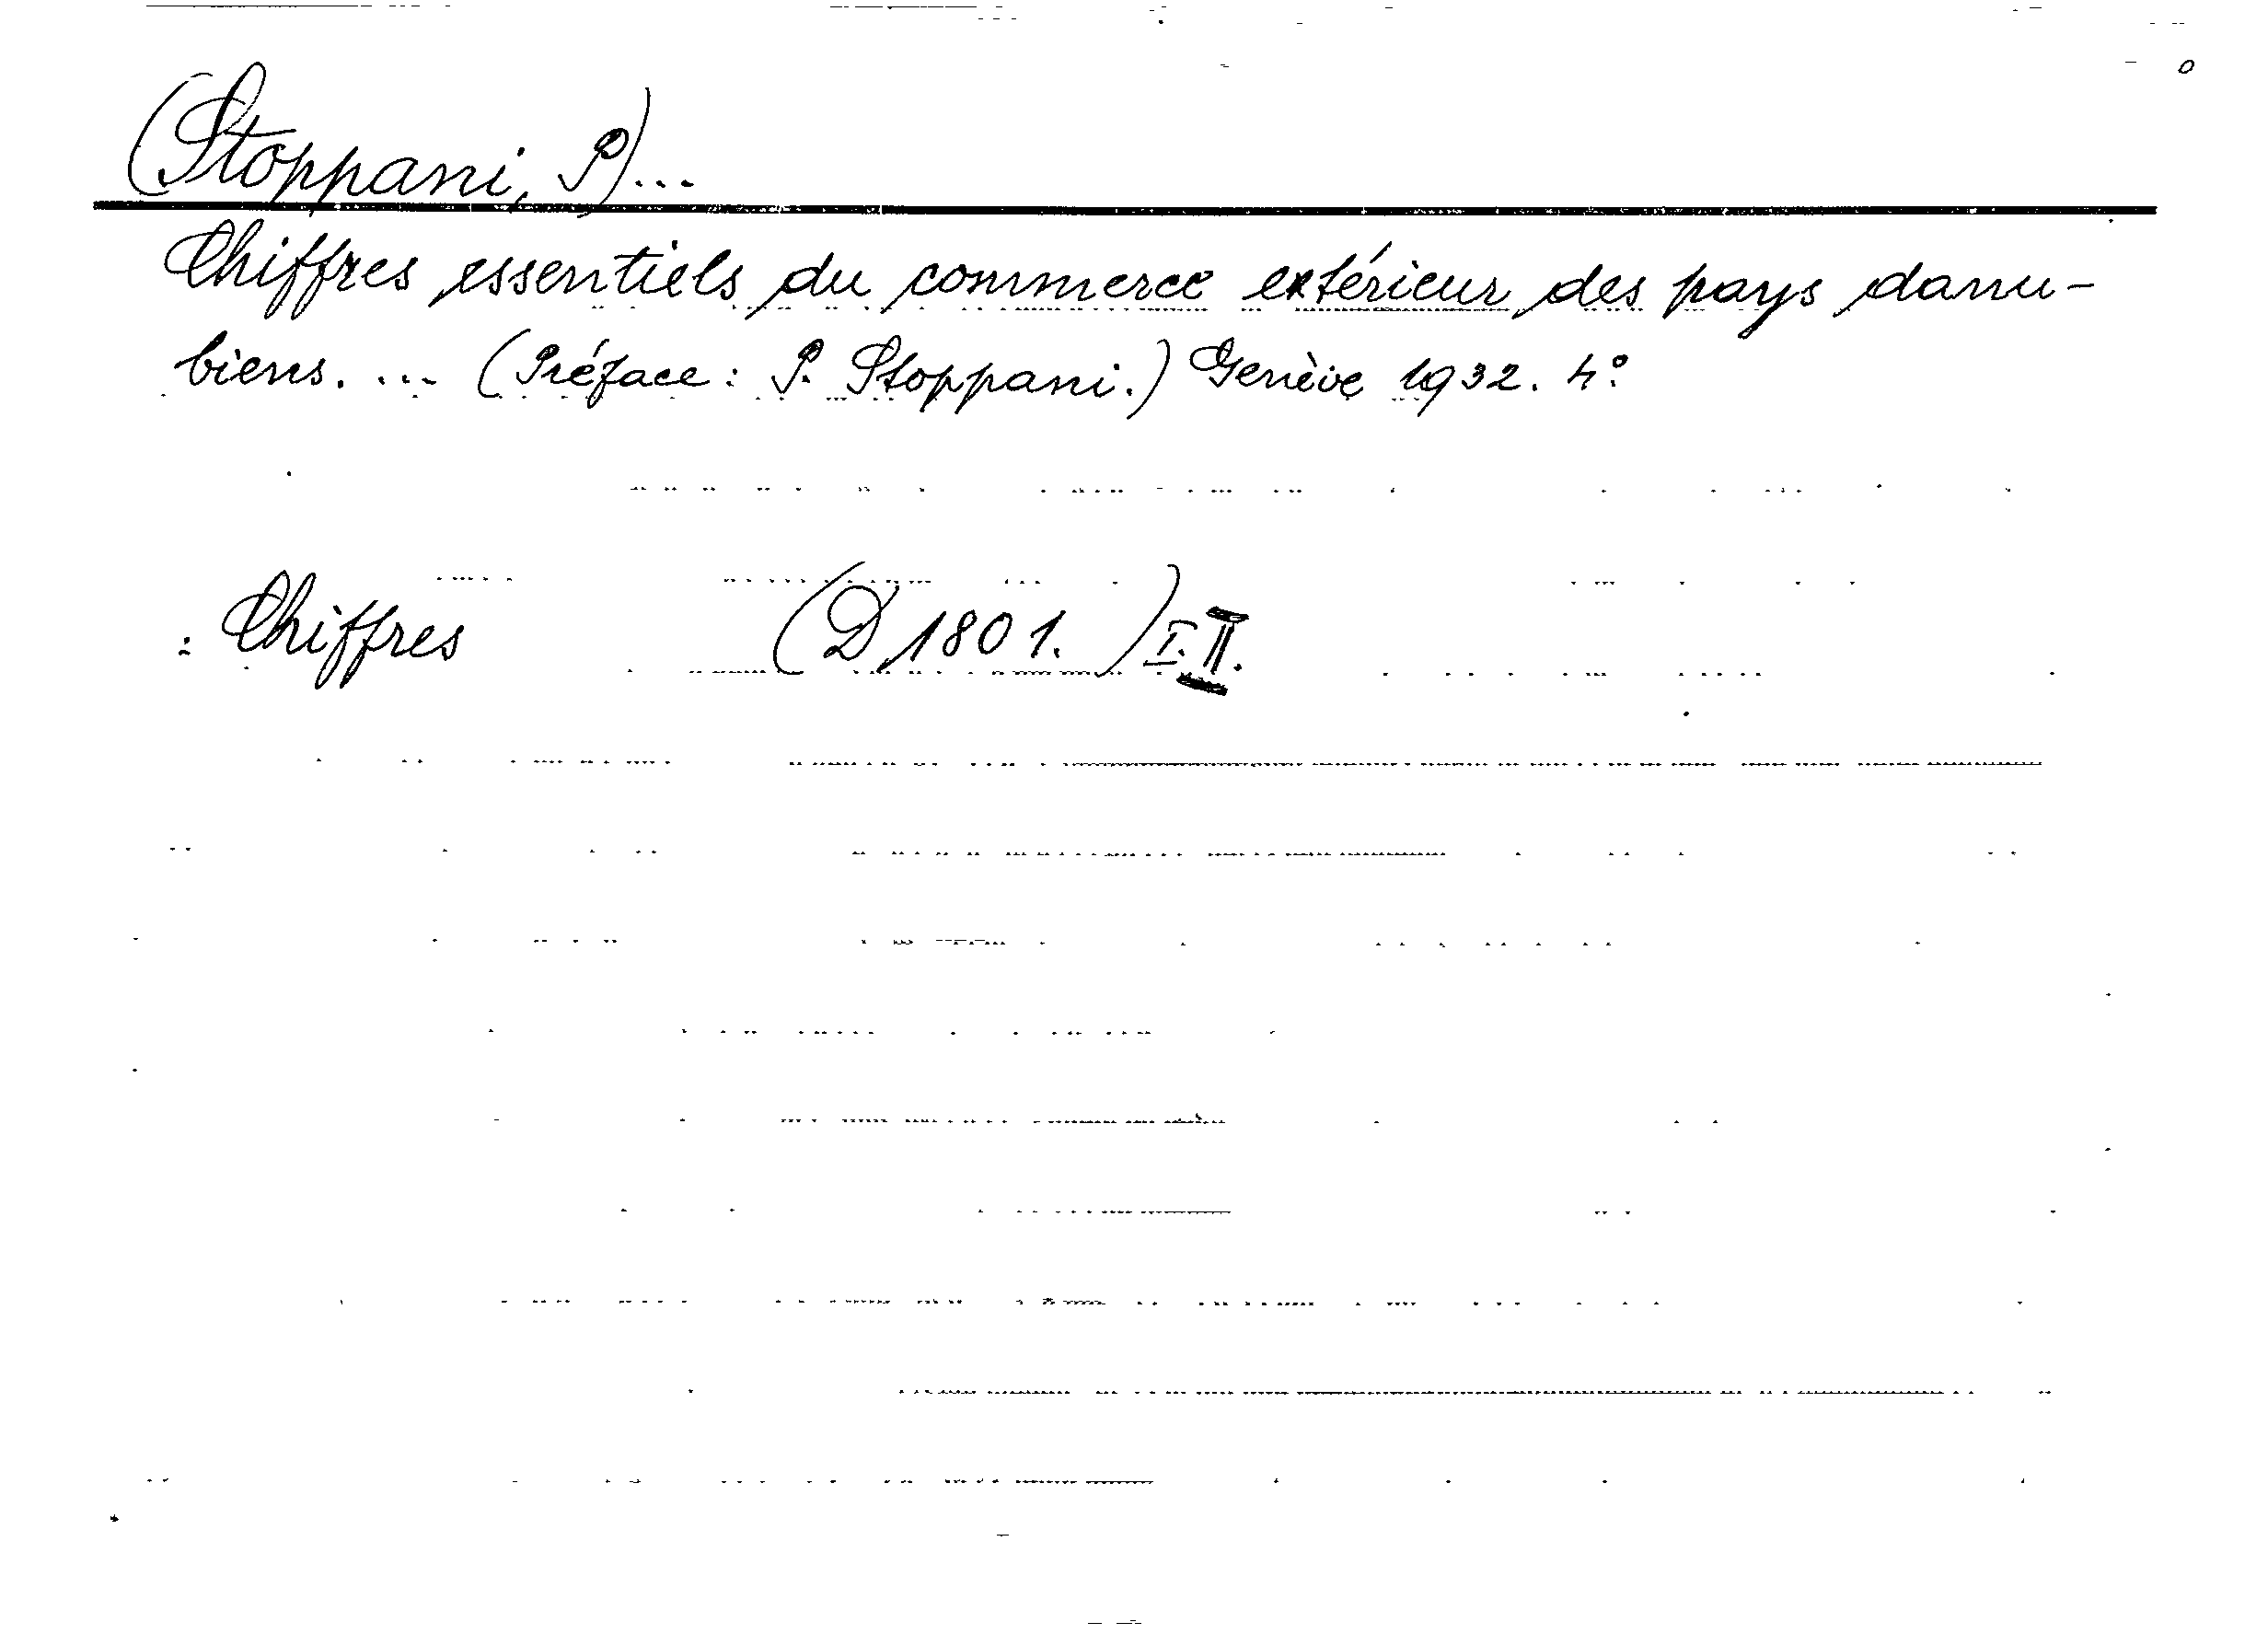 (Stoppani, P)...
Chiffres essentiels du commerce extérieur des pays danu-
biens. ... (Préface: P. Stoppani.) Genève 1932. 4°.
: Chiffres (D 1801.) I. II.